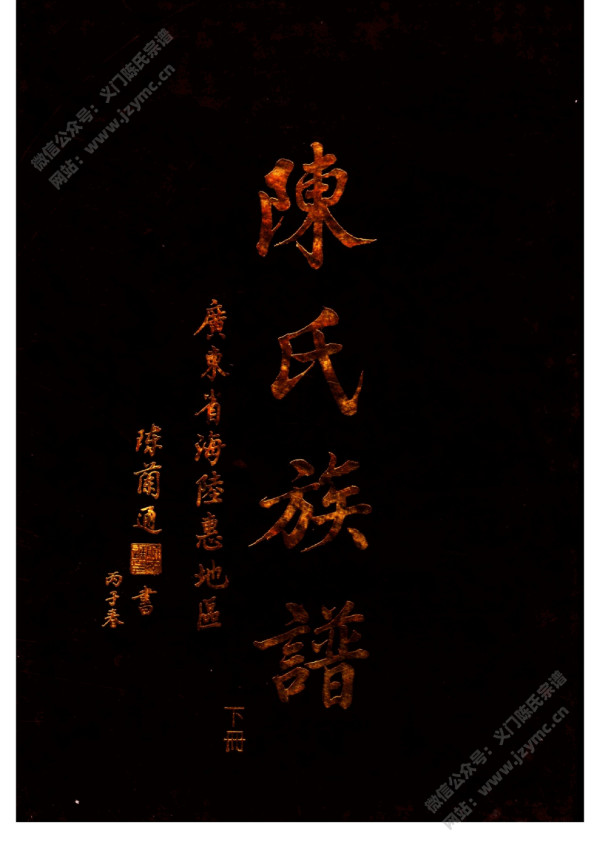 陳氏族譜
廣東省海陸惠地區
下冊
丙子春
書
微信公众号：义门陈氏宗谱
网站：www.jzymc.cn
微信公众号：义门陈氏宗谱
网站：www.jzymc.cn